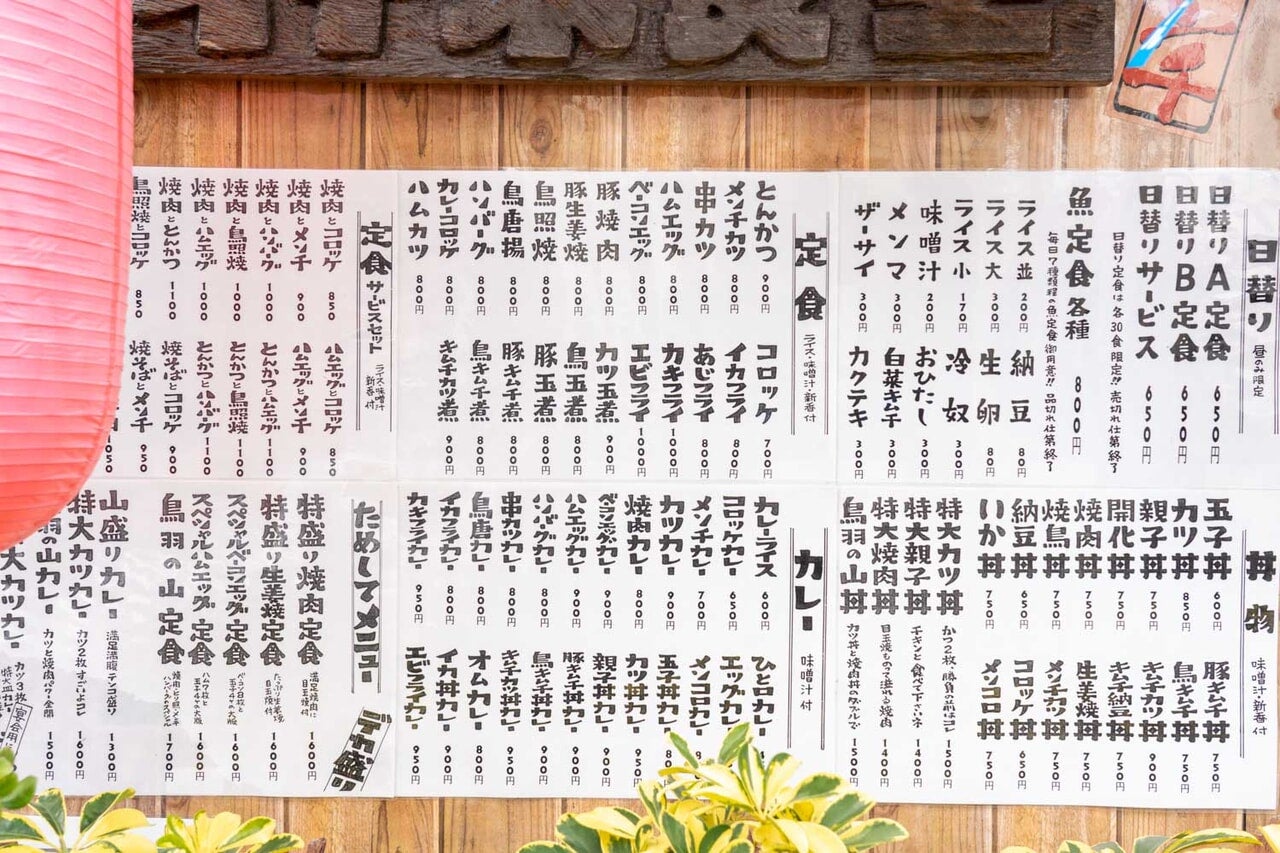 日替り
昼のみ限定
日替りA定食 650円
日替りB定食 650円
日替りサービス 650円
日替り定食は各30食限定!! 売切れ仕第終了
魚定食各種 800円
毎日7種類程の魚定食御用意!! 品切れ仕第終了
ライス並 200円
ライス大 300円
ライス小 170円
味噌汁 200円
メンマ 300円
ザーサイ 300円
納豆 80円
生卵 80円
冷奴 300円
おひたし 300円
白菜キムチ 300円
カクテキ 300円
定食
ライス・味噌汁・新香付
とんかつ 900円
メンチカツ 800円
串カツ 800円
ハムエッグ 800円
ベーコンエッグ 800円
豚焼肉 800円
豚生姜焼 800円
鳥照焼 800円
鳥唐揚 800円
ハンバーグ 800円
カレーコロッケ 800円
ハムカツ 800円
コロッケ 700円
イカフライ 800円
あじフライ 800円
カキフライ 1000円
エビフライ 1000円
カツ玉煮 900円
鳥玉煮 800円
豚玉煮 800円
豚キムチ煮 800円
鳥キムチ煮 800円
キムチカツ煮 900円
定食サービスセット
ライス・味噌汁
新香付
焼肉とコロッケ 850
焼肉とメンチ 900
焼肉とハンバーグ 1000
焼肉と鳥照焼 1000
焼肉とハムエッグ 1000
焼肉ととんかつ 1100
鳥照焼とコロッケ 850
ハムエッグとコロッケ 850
ハムエッグとメンチ 900
とんかつとハムエッグ 1100
とんかつと鳥照焼 1100
とんかつとハンバーグ 1100
焼そばとコロッケ 900
焼そばとメンチ 950
丼物
味噌汁・新香付
玉子丼 600円
カツ丼 850円
親子丼 750円
開化丼 750円
焼肉丼 750円
焼鳥丼 750円
納豆丼 650円
いか丼 750円
豚キムチ丼 750円
鳥キムチ丼 750円
キムチカツ丼 900円
キムチ納豆丼 750円
生姜焼丼 750円
メンチカツ丼 750円
コロッケ丼 650円
メンコロ丼 750円
特大カツ丼 かつ2枚、勝負の前はコレ 1500円
特大親子丼 チキンと食べて下さいネ 1400円
特大焼肉丼 目玉焼ものって座れる焼肉 1400円
鳥羽の山丼 カツ丼と焼肉丼のダブル 1500円
カレー
味噌汁付
カレーライス 600円
コロッケカレー 650円
メンチカレー 700円
カツカレー 900円
焼肉カレー 800円
ベーコンエッグカレー 900円
ハムエッグカレー 900円
ハンバーグカレー 900円
串カツカレー 900円
鳥唐カレー 800円
イカフライカレー 800円
カキフライカレー 950円
ひと口カレー
エッグカレー
メンコロカレー
玉子丼カレー
カツ丼カレー 950
親子丼カレー 900円
豚キムチ丼カレー 900円
鳥キムチ丼カレー 900円
キムチカツ丼カレー 950円
オムカレー 800円
イカ丼カレー 900円
エビフライカレー 950円
ためしてメニュー
デカ盛り
特盛り焼肉定食 満足焼肉に目玉焼付 1600円
特盛り生姜焼定食 1600円
スペシャルベーコンエッグ定食 1600円
スペシャルハムエッグ定食 1600円
鳥羽の山定食 1700円
山盛りカレー 満足満腹テンコ盛り 1300円
特大カツカレー カツ2枚すごいよコレ 1600円
羽の山カレー カツと焼肉パワー全開 1500円
大カツカレー カツ3枚